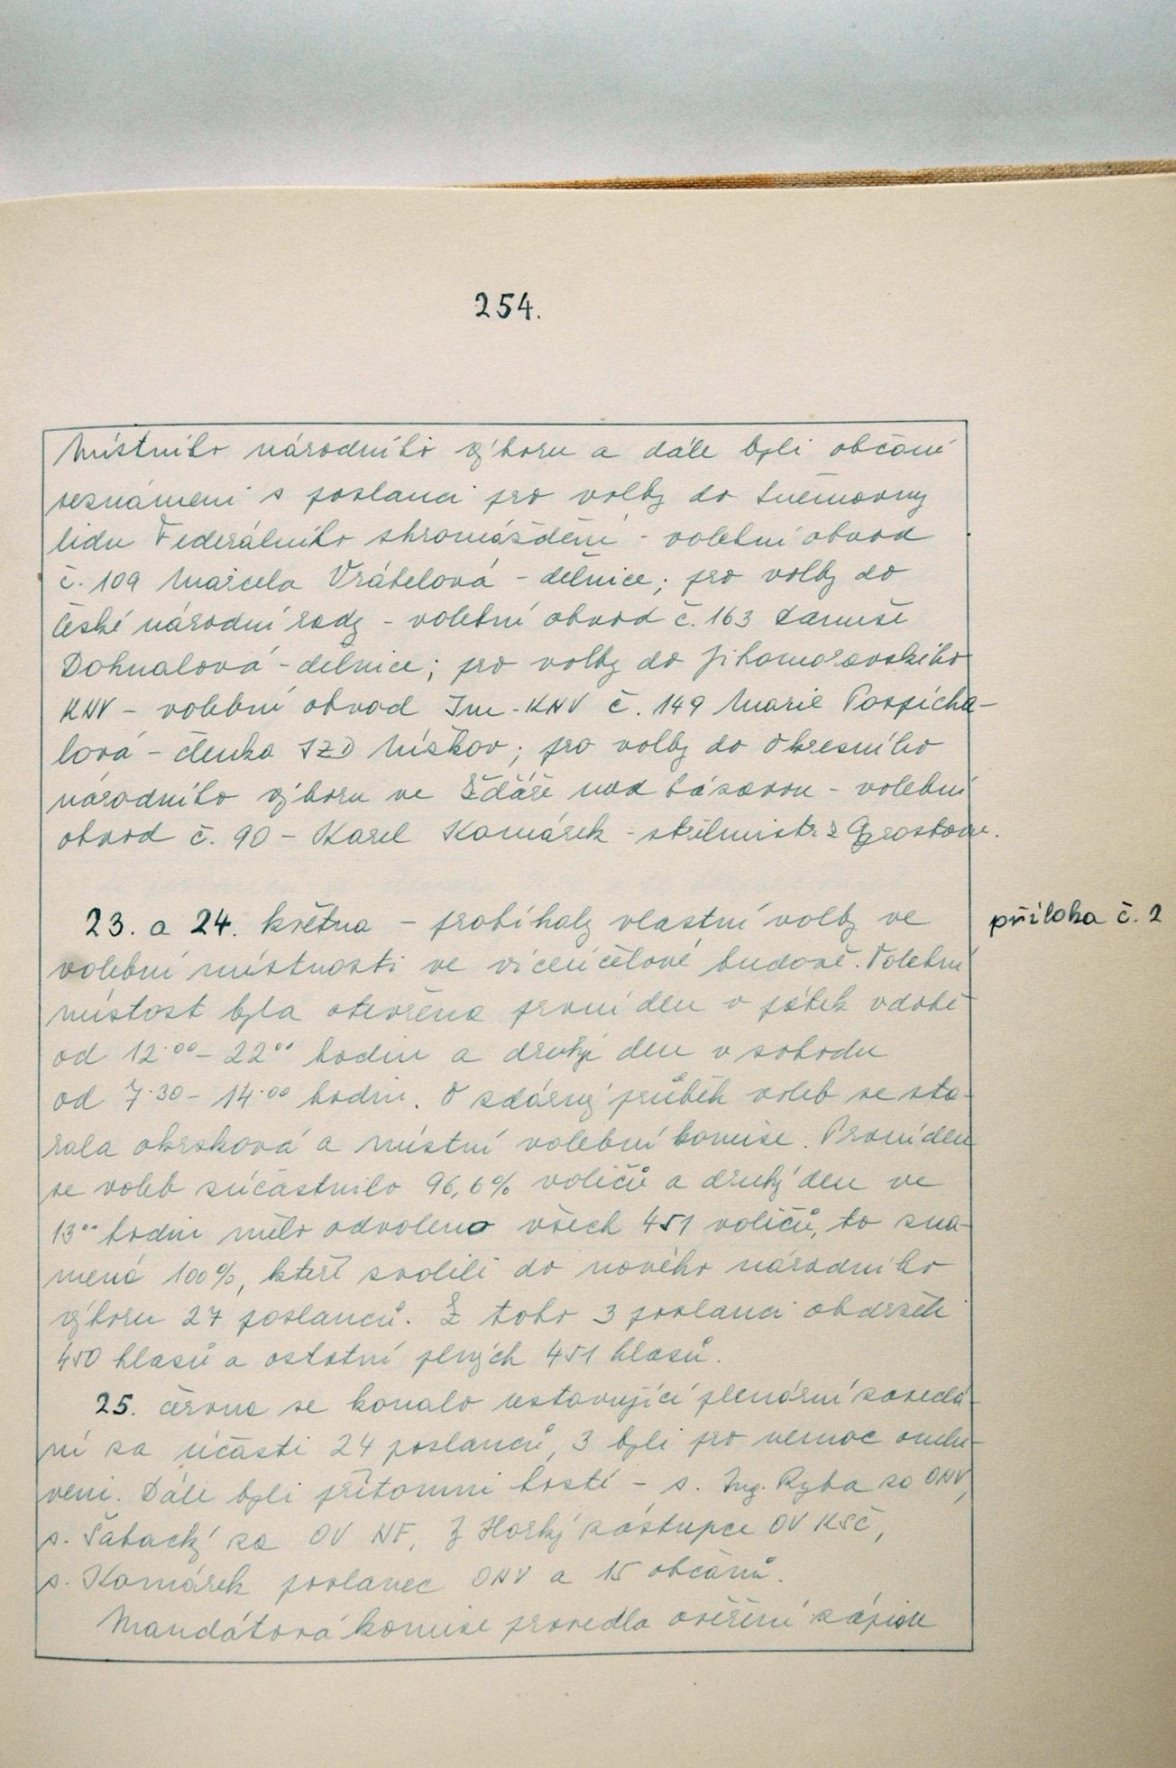 254.
Místního národního výboru a dále byli občané
seznámeni s poslanci pro volby do Sněmovny
lidu Federálního shromáždění - volební obvod
č. 109 Marcela Vrábelová - dělnice; pro volby do
České národní rady - volební obvod č. 163 Danuše
Dohnalová - dělnice; pro volby do Jihomoravského
KNV - volební obvod Jm-KNV č. 149 Marie Pospícha-
lová - členka JZD Níhov; pro volby do Okresního
národního výboru ve Žďáře nad Sázavou - volební
obvod č. 90 - Karel Komárek - střelmistr z
23. a 24. května - probíhaly vlastní volby ve
příloha č. 2
volební místnosti ve víceúčelové budově. Volební
místost byla otevřena první den v pátek v době
od 12.00 - 22.00 hodin a druhý den v sobotu
od 7.30 - 14.00 hodin. O zdárný průběh voleb se sta-
rala okrsková a místní volební komise. První den
se voleb súčastnilo 96,6% voličů a druhý den ve
13.00 hodin mělo odvoleno všech 451 voličů, to zna-
mená 100%, kteří zvolili do nového národního
výboru 27 poslanců. Z toho 3 poslanci obdrželi
450 hlasů a ostatní plných 451 hlasů.
25. června se konalo ustavující plenární zasedá-
ní za účasti 24 poslanců, 3 byli pro nemoc omlu-
veni. Dále byli přítomni hosté - s. Ing. Ryba za ONV,
s. Šabacký za OV NF, J Horký zástupce OV KSČ,
s. Komárek poslanec ONV a 15 občanů.
Mandátová komise provedla ověření zápisu